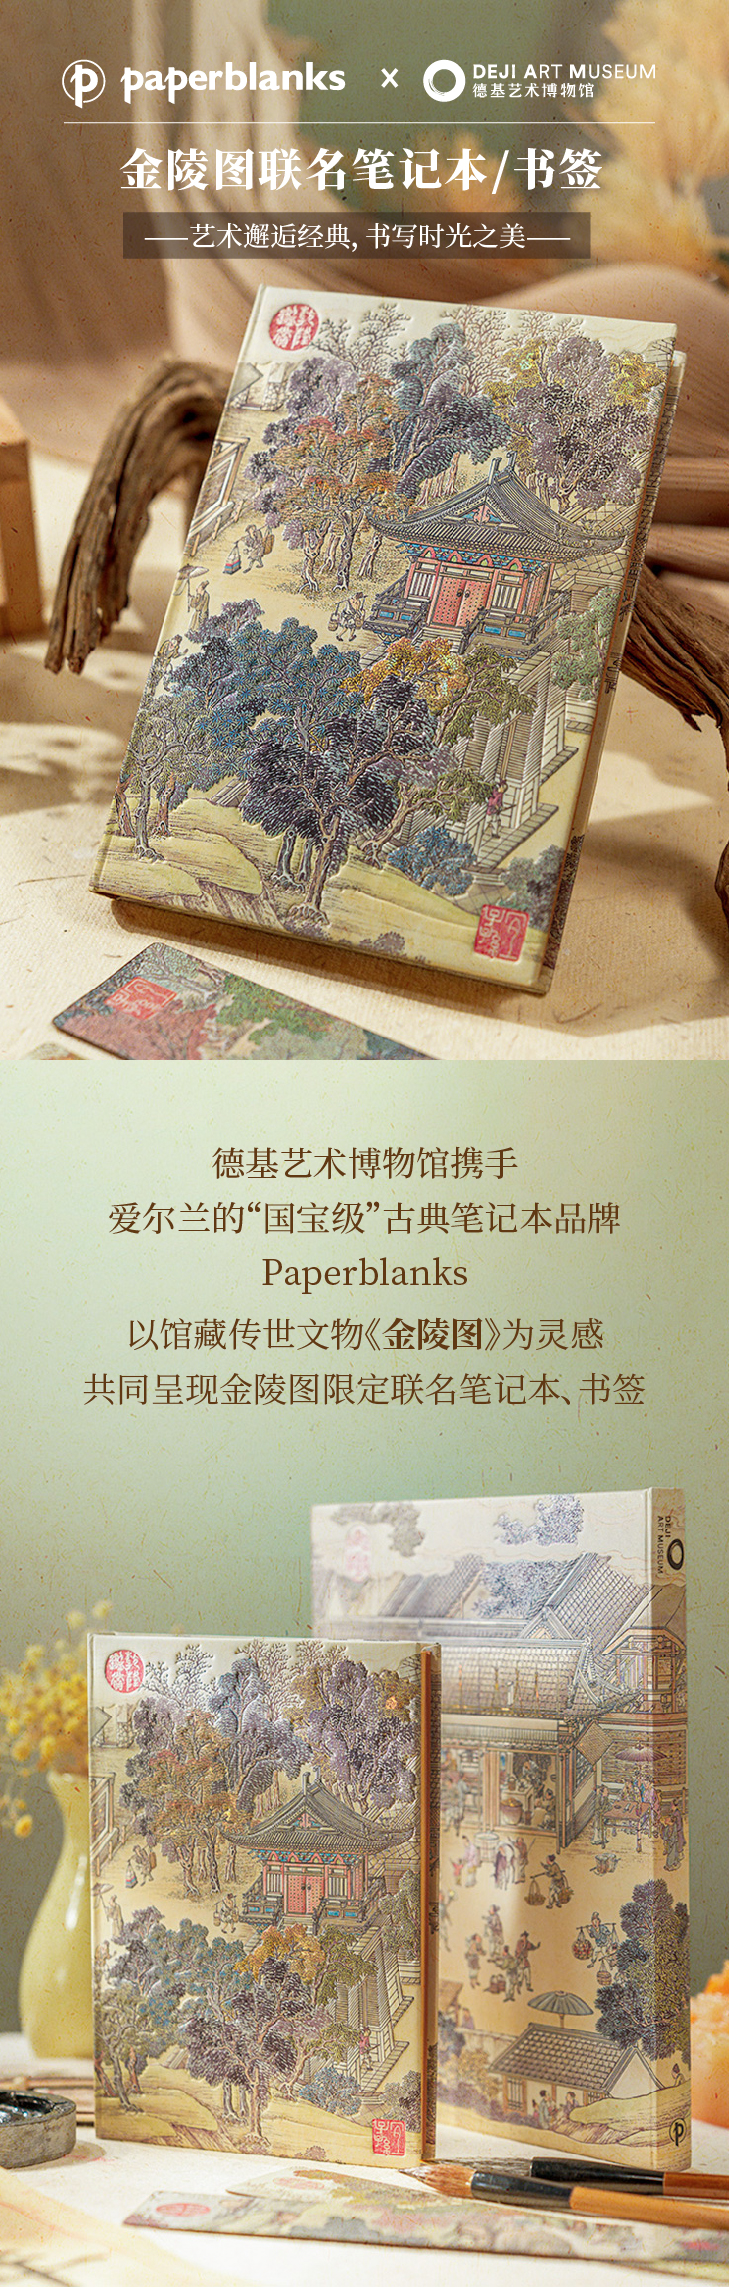 paperblanks × DEJI ART MUSEUM
德基艺术博物馆
金陵图联名笔记本/书签
——艺术邂逅经典, 书写时光之美——
德基艺术博物馆携手
爱尔兰的“国宝级”古典笔记本品牌
Paperblanks
以馆藏传世文物《金陵图》为灵感
共同呈现金陵图限定联名笔记本、书签
DEJI
ART MUSEUM